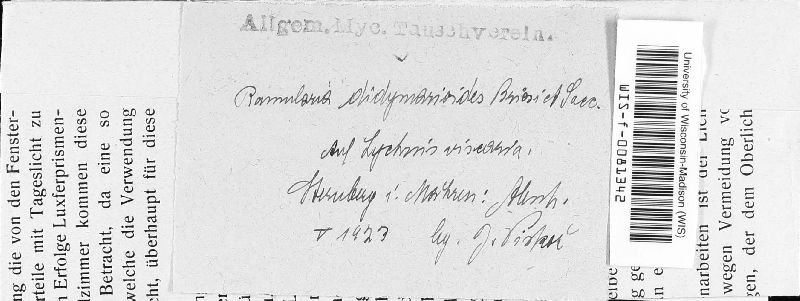 Allgem. Myc. Tauschverein.
Ramularia didymarioides Briosi et Sacc.
Auf Lychnis viscaria.
Sternberg i. Mähren:
V 1923 lg. J. Piskoř
University of Wisconsin-Madison (WIS)
WIS-f-0081342
ng die von den Fenster-
rteile mit Tageslicht zu
n Erfolge Luxferprismen-
lzimmer kommen diese
Betracht, da eine so
welche die Verwendung
cht, überhaupt für diese
marbeiten ist der Lich
wegen Vermeidung vo
gen, der dem Oberlich